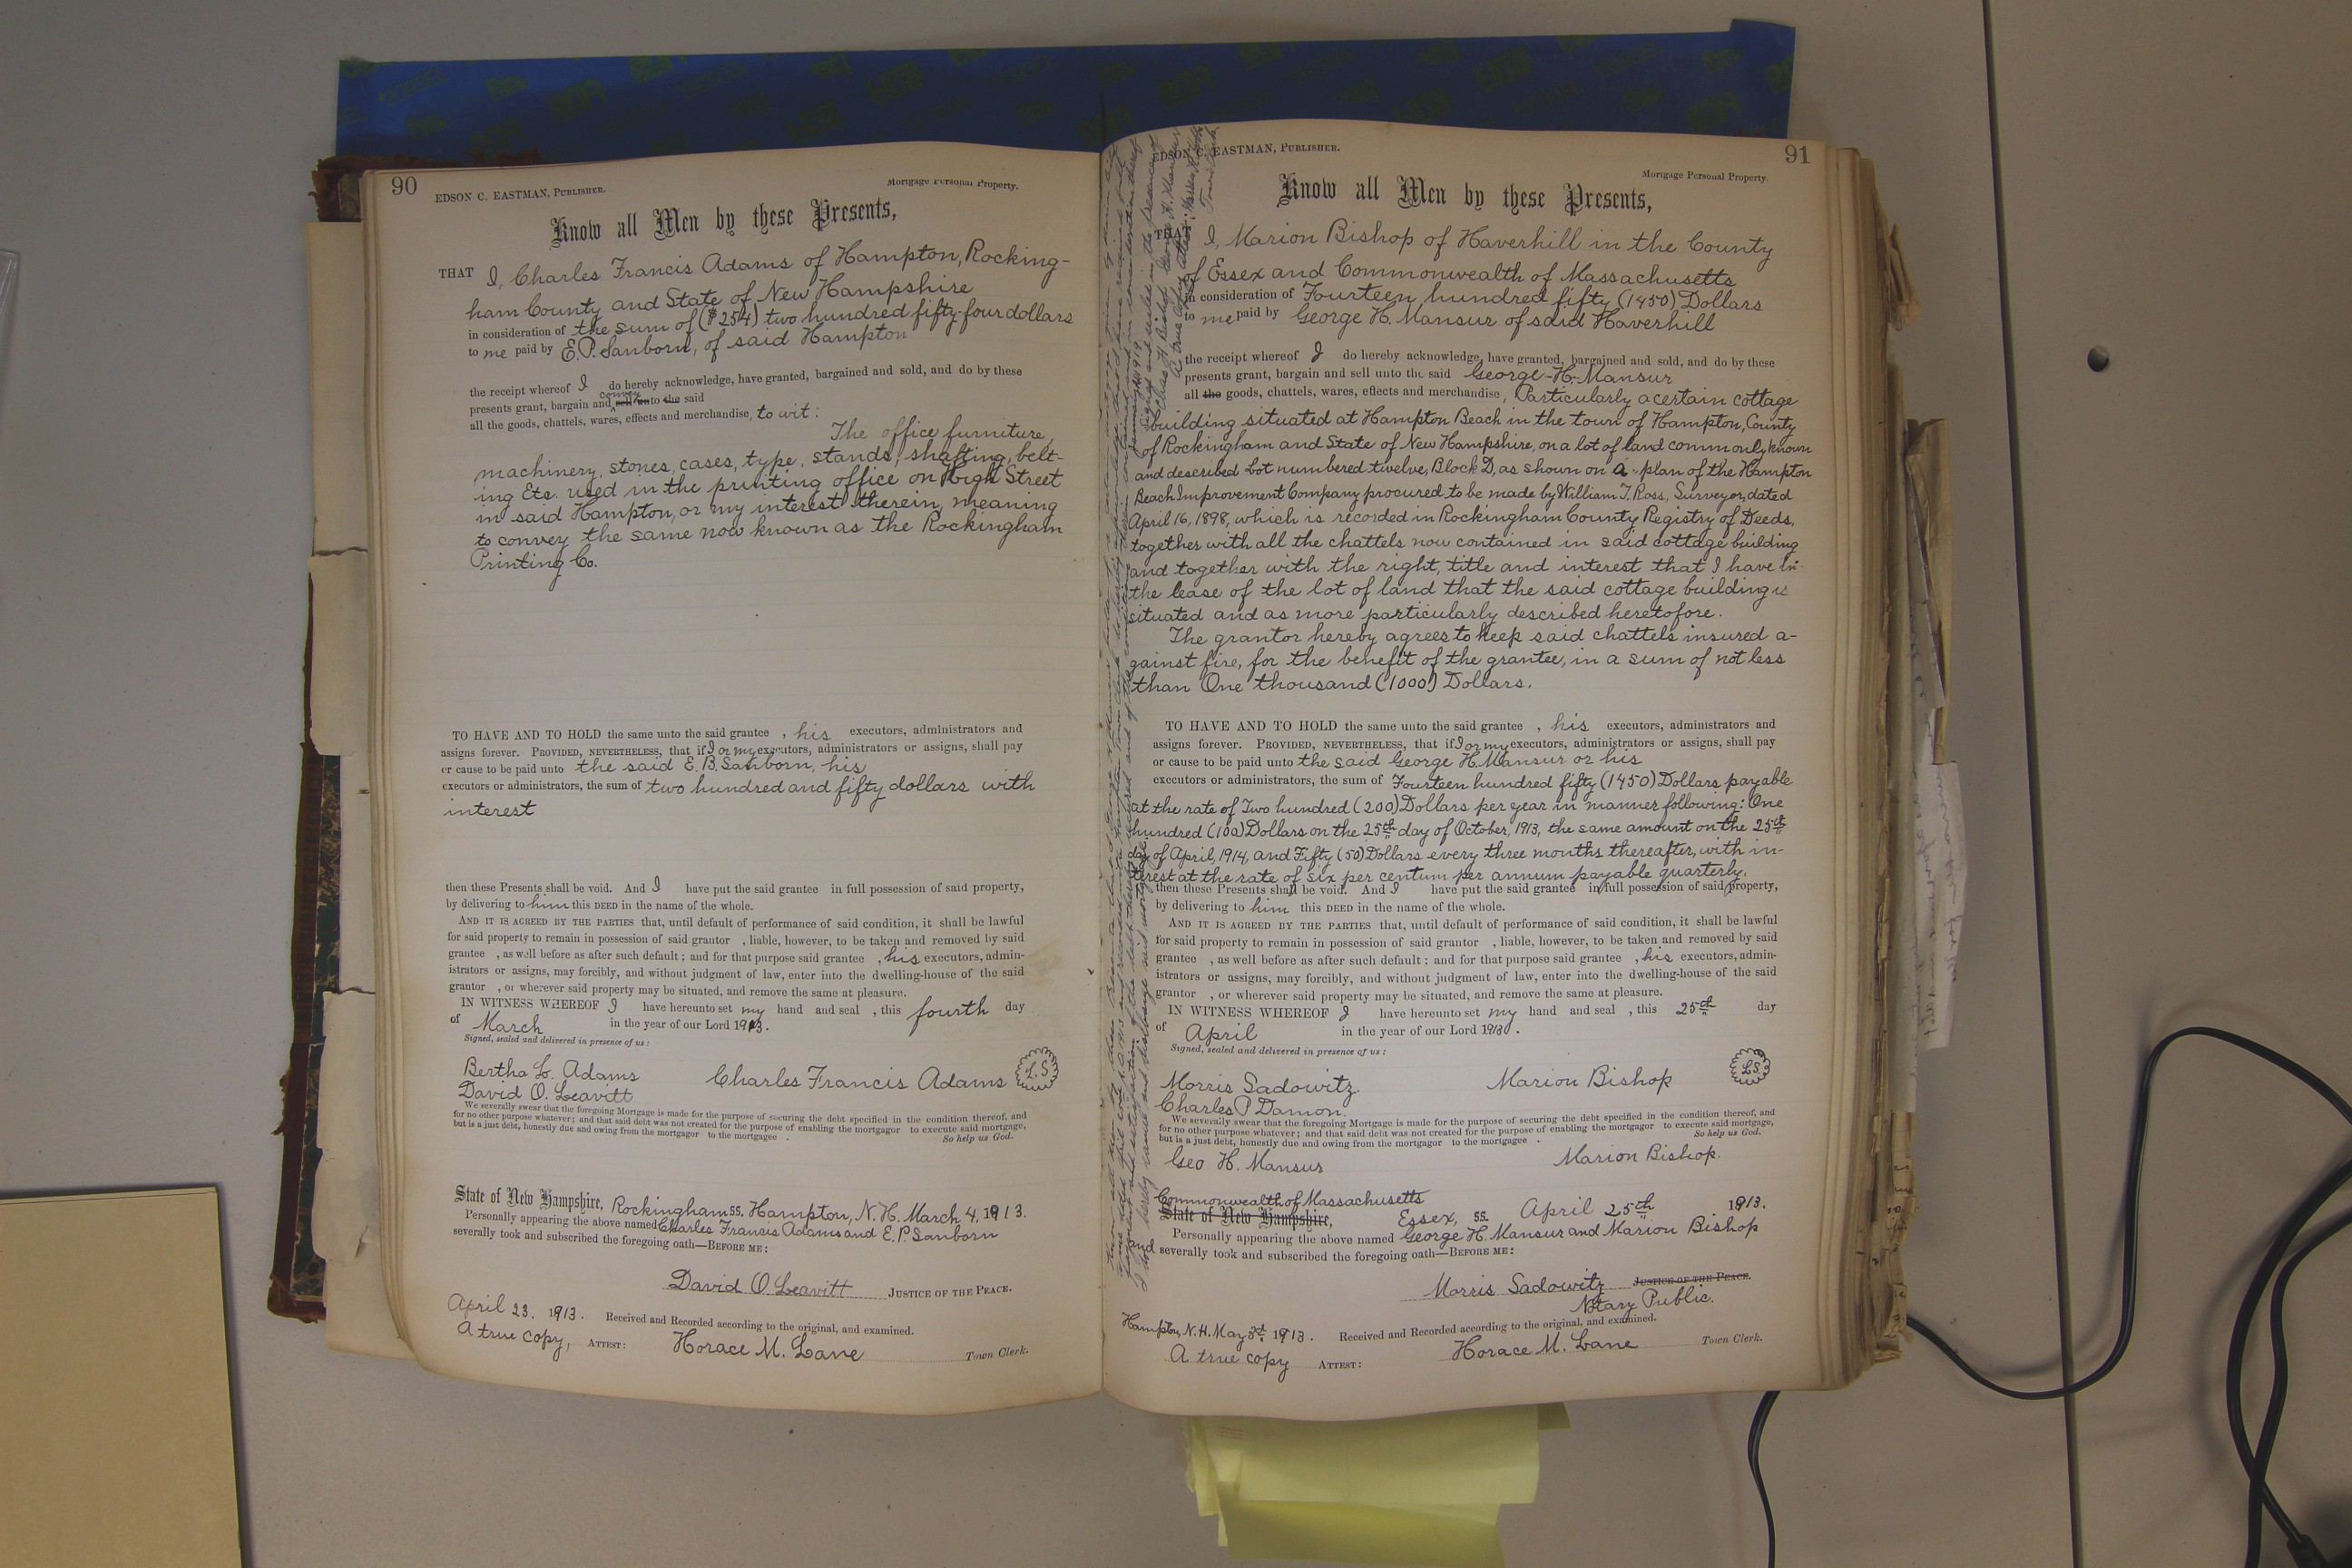 90
EDSON C. EASTMAN, PUBLISHER.
Mortgage Personal Property.
Know all Men by these Presents,
THAT I, Charles Francis Adams of Hampton, Rocking-
ham County and State of New Hampshire
in consideration of the sum of ($254) two hundred fifty-four dollars
to me paid by E.P. Sanborn, of said Hampton
the receipt whereof I do hereby acknowledge, have granted, bargained and sold, and do by these
presents grant, bargain and convey sell unto the said
all the goods, chattels, wares, effects and merchandise, to wit:
The office furniture,
machinery, stones, cases, type, stands, shafting, belt-
ing Etc. used in the printing office on High Street
in said Hampton, or my interest therein, meaning
to convey the same now known as the Rockingham
Printing Co.
TO HAVE AND TO HOLD the same unto the said grantee , his executors, administrators and
assigns forever. PROVIDED, NEVERTHELESS, that if I or my executors, administrators or assigns, shall pay
or cause to be paid unto the said E. B. Sanborn, his
executors or administrators, the sum of two hundred and fifty dollars with
interest
then these Presents shall be void. And I have put the said grantee in full possession of said property,
by delivering to him this DEED in the name of the whole.
AND IT IS AGREED BY THE PARTIES that, until default of performance of said condition, it shall be lawful
for said property to remain in possession of said grantor , liable, however, to be taken and removed by said
grantee , as well before as after such default; and for that purpose said grantee , his executors, admin-
istrators or assigns, may forcibly, and without judgment of law, enter into the dwelling-house of the said
grantor , or wherever said property may be situated, and remove the same at pleasure.
IN WITNESS WHEREOF I have hereunto set my hand and seal , this fourth day
of March in the year of our Lord 1913.
Signed, sealed and delivered in presence of us:
Bertha L. Adams
David O. Leavitt
Charles Francis Adams L.S
We severally swear that the foregoing Mortgage is made for the purpose of securing the debt specified in the condition thereof, and
for no other purpose whatever; and that said debt was not created for the purpose of enabling the mortgagor to execute said mortgage,
but is a just debt, honestly due and owing from the mortgagor to the mortgagee . So help us God.
State of New Hampshire, Rockingham SS. Hampton, N.H. March 4, 1913.
Personally appearing the above named Charles Francis Adams and E. P. Sanborn
severally took and subscribed the foregoing oath—BEFORE ME:
David O Leavitt JUSTICE OF THE PEACE.
April 23. 1913. Received and Recorded according to the original, and examined.
A true copy, ATTEST: Horace M. Lane Town Clerk.
91
EDSON C. EASTMAN, PUBLISHER.
Mortgage Personal Property.
Know all Men by these Presents,
THAT I, Marion Bishop of Haverhill in the County
of Essex and Commonwealth of Massachusetts
in consideration of Fourteen hundred fifty (1450) Dollars
to me paid by George H. Mansur of said Haverhill
the receipt whereof I do hereby acknowledge, have granted, bargained and sold, and do by these
presents grant, bargain and sell unto the said George H. Mansur
all the goods, chattels, wares, effects and merchandise, Particularly a certain cottage
building situated at Hampton Beach in the town of Hampton, County
of Rockingham and State of New Hampshire, on a lot of land commonly known
and described Lot numbered twelve, Block D, as shown on a plan of the Hampton
Beach Improvement Company procured to be made by William T. Ross, Surveyor, dated
April 16, 1898, which is recorded in Rockingham County Registry of Deeds,
together with all the chattels now contained in said cottage building
and together with the right, title and interest that I have in
the lease of the lot of land that the said cottage building is
situated and as more particularly described heretofore.
The grantor hereby agrees to keep said chattels insured a-
gainst fire, for the benefit of the grantee, in a sum of not less
than One thousand (1000) Dollars.
TO HAVE AND TO HOLD the same unto the said grantee , his executors, administrators and
assigns forever. PROVIDED, NEVERTHELESS, that if I or my executors, administrators or assigns, shall pay
or cause to be paid unto the said George H. Mansur or his
executors or administrators, the sum of Fourteen hundred fifty (1450) Dollars payable
at the rate of Two hundred (200) Dollars per year in manner following: One
hundred (100) Dollars on the 25th day of October, 1913, the same amount on the 25th
day of April, 1914, and Fifty (50) Dollars every three months thereafter, with in-
terest at the rate of six per centum per annum payable quarterly.
then these Presents shall be void. And I have put the said grantee in full possession of said property,
by delivering to him this DEED in the name of the whole.
AND IT IS AGREED BY THE PARTIES that, until default of performance of said condition, it shall be lawful
for said property to remain in possession of said grantor , liable, however, to be taken and removed by said
grantee , as well before as after such default; and for that purpose said grantee , his executors, admin-
istrators or assigns, may forcibly, and without judgment of law, enter into the dwelling-house of the said
grantor , or wherever said property may be situated, and remove the same at pleasure.
IN WITNESS WHEREOF I have hereunto set my hand and seal , this 25th day
of April in the year of our Lord 1913.
Signed, sealed and delivered in presence of us:
Morris Sadowitz.
Charles P Damon.
Marion Bishop L.S.
We severally swear that the foregoing Mortgage is made for the purpose of securing the debt specified in the condition thereof, and
for no other purpose whatever; and that said debt was not created for the purpose of enabling the mortgagor to execute said mortgage,
but is a just debt, honestly due and owing from the mortgagor to the mortgagee . So help us God.
Geo H. Mansur Marion Bishop.
Commonwealth of Massachusetts
State of New Hampshire, Essex, SS. April 25th 1913.
Personally appearing the above named George H. Mansur and Marion Bishop
and severally took and subscribed the foregoing oath—BEFORE ME:
Morris Sadowitz JUSTICE OF THE PEACE.
Notary Public.
Hampton, N.H. May 3d, 1913. Received and Recorded according to the original, and examined.
A true copy ATTEST: Horace M. Lane Town Clerk.